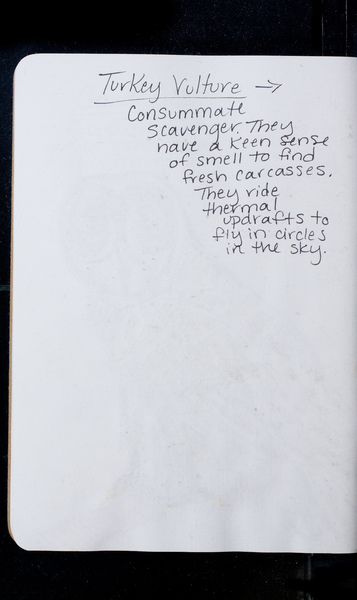 Turkey Vulture →
Consummate
Scavenger. They
have a keen sense
of smell to find
fresh carcasses.
They ride
thermal
updrafts to
fly in circles
in the sky.